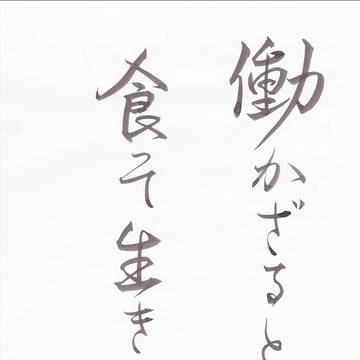 働かざると
食て生き